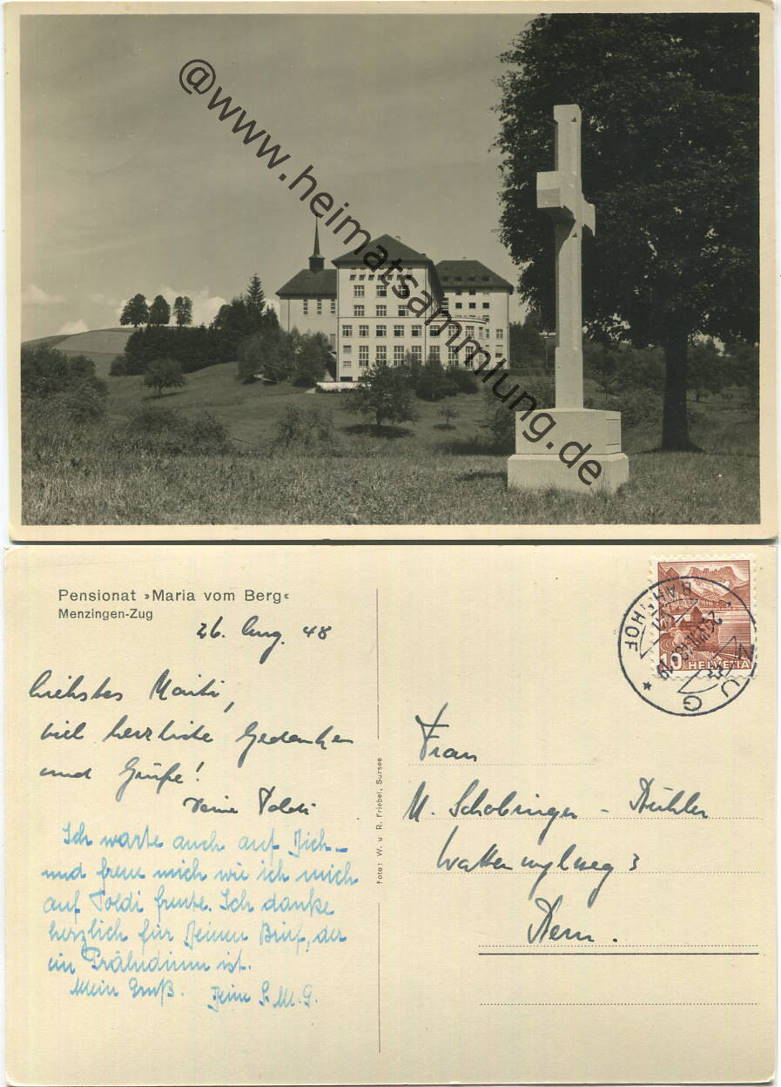 @www.heimatsammlung.de
Pensionat »Maria vom Berg«
Menzingen-Zug
26. Aug. 48
liebstes Maiti,
viel herzliche Gedanken
und Grüße!
Deine Poldi
Ich warte auch auf Dich –
und freue mich wie ich mich
auf Poldi freute. Ich danke
herzlich für Deinen Brief, der
ein Präludium ist.
Mein Gruß. Deine S. M. G.
Foto: W. u. R. Friebel, Sursee
ZUG
BAHNHOF
10 HELVETIA
Frau
M. Schobinger - Bühler
Wattenwylweg 3
Bern.